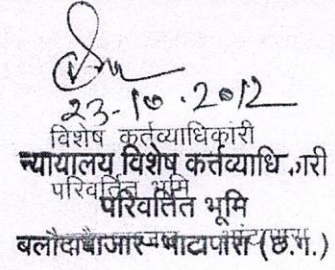 23-10.2012
विशेष कर्तव्याधिकारी
न्यायालय विशेष कर्तव्याधि .ारी
परिवर्तित भूमि
परिवर्तित भूमि
बलौदाबाजार - भाटापारा (छ.ग.)